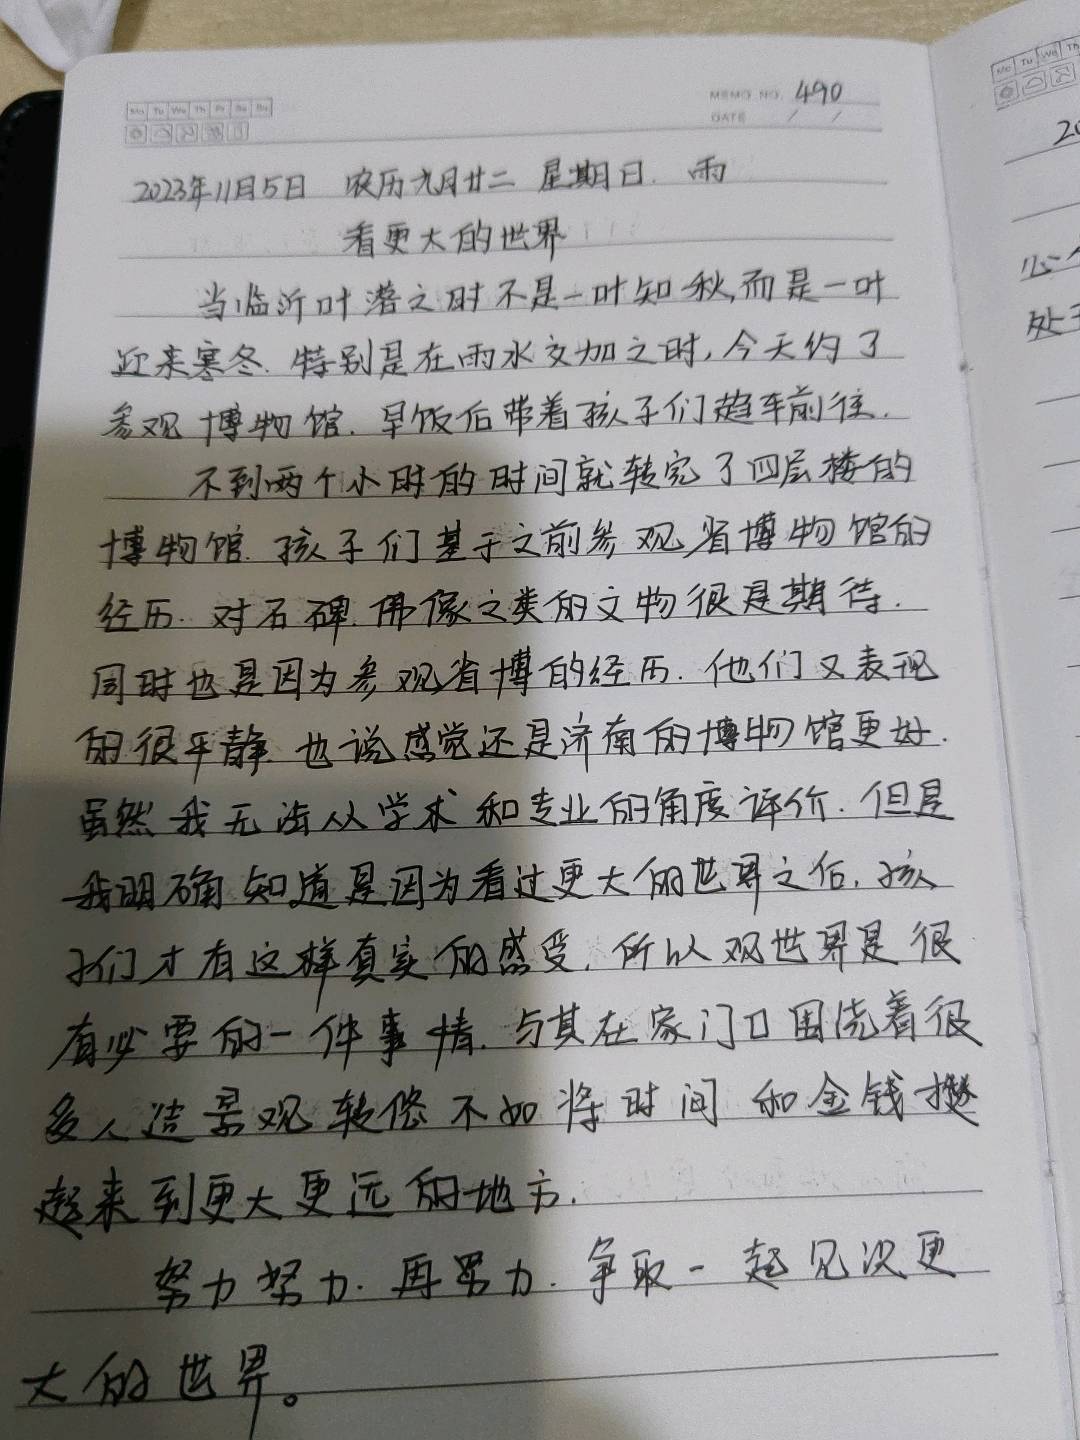 Mo Tu We Th Fr Sa Su
MEMO NO. 490
DATE / /
2023年11月5日 农历九月廿二 星期日. 雨
看更大的世界
当临沂叶落之时不是一叶知秋,而是一叶
迎来寒冬.特别是在雨水交加之时,今天约了
参观博物馆.早饭后带着孩子们趋车前往.
不到两个小时的时间就转完了四层楼的
博物馆.孩子们基于之前参观省博物馆的
经历.对石碑.佛像之类的文物很是期待.
同时也是因为参观省博的经历.他们又表现
的很平静.也说感觉还是济南的博物馆更好.
虽然我无法从学术和专业的角度评价.但是
我明确知道是因为看过更大的世界之后,孩
子们才有这样真实的感受.所以观世界是很
有必要的一件事情.与其在家门口围绕着很
多人造景观转悠不如将时间和金钱攒
起来到更大更远的地方.
努力努力.再努力.争取一起见识更
大的世界。
Mo Tu We Th
20
心
处于